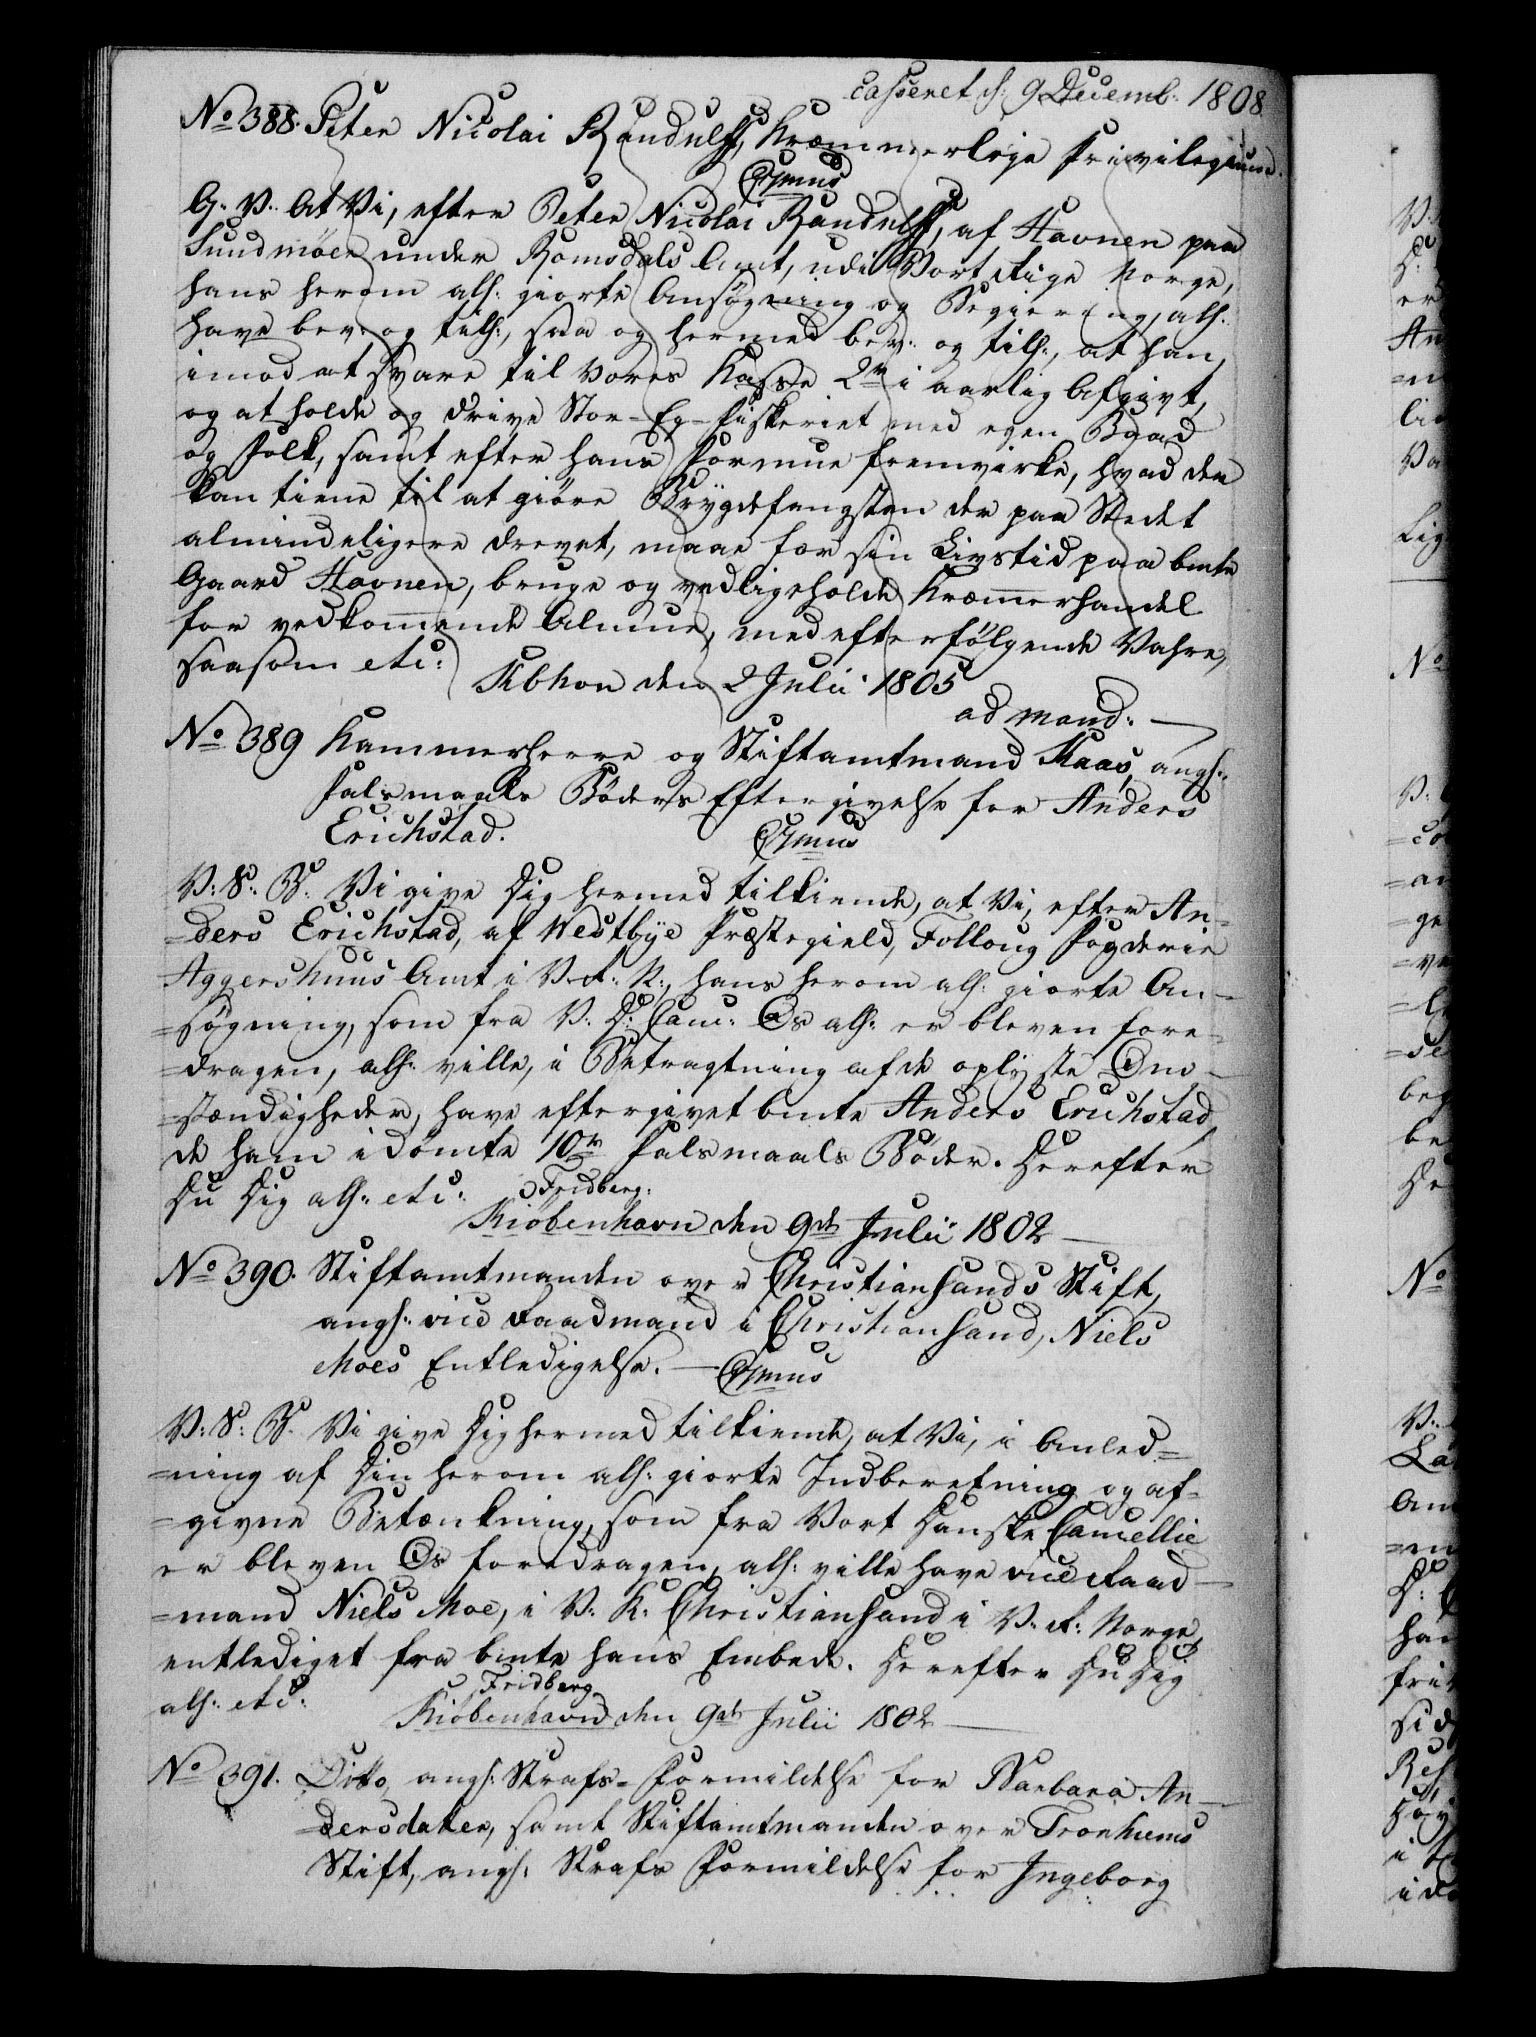 casseret d: 9 Decemb: 1808.
No 388. Peter Nicolai Randulff, Kræmmerleje Privilegium.
Gmus
G. V. At Vi, efter Peter Nicolai Randulff, af Havnen paa
Sundmöer under Romsdals Amt, udi Vort Rige Norge,
hans herom allh: giorte Ansøgning og Begiering, allh:
have bev: og tilh:, saa og hermed bev: og tilh:, at han,
imod at svare til Vores Kasse 2 rd i aarlig Afgivt,
og at holde og drive Stor-Eg-fiskeriet med egen Baad
og Folk, samt efter hans Formue fremvirke, hvad der
kan tiene til at giøre Brÿgdefangsten der paa Stedet
almindeligere drevet, maae for sin Livstid paa bmte
Gaard Havnen, bruge og vedligeholde Kræmerhandel
for vedkommende Almue, med efterfølgende Vahre,
saasom etc:
Kbhvn den 2 Julii 1805
ad mand: —
No 389 Kammerherre og Stiftamtmand Kaas, angh:
Falsmaals Bøders Eftergivelse for Anders
Erichstad.
Gmus
V: S: B. Vi give Dig hermed tilkiende, at Vi, efter An-
=ders Erichstad, af Westbÿe Præstegield, Folloug Fogderie
Aggershuus Amt i V. R. N:, hans herom allh: giorte An-
=søgning, som fra V: D: Canc: Os allh: er bleven fore-
=dragen, allh: ville, i Betragtning af de oplÿste Om-
=stændigheder, have eftergivet bmte Anders Erichstad
de ham idømte 10 rd Falsmaals Bøder. Derefter
Du Dig allh: etc:
Fridberg:
Kiøbenhavn den 9de Julii 1802 —
No 390. Stiftamtmanden over Christiansands Stift,
angh: vice Raadmand i Christiansand, Niels
Moes Entledigelse. — Gmus
V: S: B. Vi give Dig hermed tilkiende, at Vi, i Anled=
=ning af Din herom allh: giorte Indberetning og af-
=givne Betænkning, som fra Vort Danske Cancellie
er bleven Os foredragen, allh: ville have vice Raad-
=mand Niels Moe, i V. K: Christiansand i V. R: Norge,
entlediget fra bmte hans Embede. Derefter Du Dig
allh: etc:
Fridberg
Kiöbenhavn den 9de Julii 1802 —
No 391. Ditto, angh: Strafs-Formildelse for Barbara An-
dersdater, samt Stiftamtmanden over Tronhiems
Stift, angh: Strafs Formildelse for Ingeborg